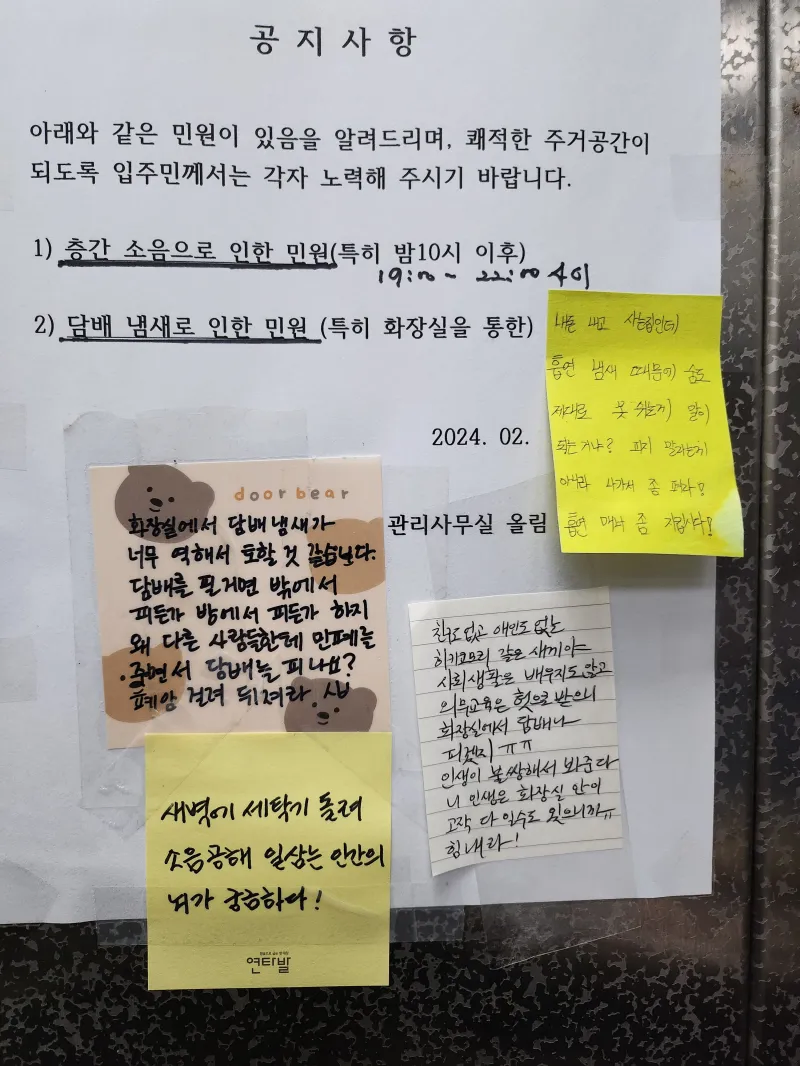 공지사항
아래와 같은 민원이 있음을 알려드리며, 쾌적한 주거공간이
되도록 입주민께서는 각자 노력해 주시기 바랍니다.
1) 층간 소음으로 인한 민원(특히 밤10시 이후)
19:00 ~ 22:00 사이
2) 담배 냄새로 인한 민원 (특히 화장실을 통한)
2024. 02.
관리사무실 올림
내돈 내고 사는집인데
흡연 냄새 때문에 숨도
제대로 못 쉬는게 말이
되는거냐? 피지 말라는게
아니라 나가서 좀 펴라!
흡연 매너 좀 지킵시다!
door bear
화장실에서 담배냄새가
너무 역해서 토할 것 같습니다.
담배를 필거면 밖에서
피든가 방에서 피든가 하지
왜 다른 사람들한테 민폐를
주면서 담배를 피나요?
폐암 걸려 뒤져라
친구도 없고 애인도 없는
히키코모리 같은 새끼야
사회생활은 배우지도 않고
의무교육은 헛으로 받으니
화장실에서 담배나
피겠지 ㅠㅠ
인생이 불쌍해서 봐준다
니 인생은 화장실 안이
고작 다 일수도 있으니까ㅠ
힘내라!
새벽에 세탁기 돌려
소음공해 일삼는 인간의
뇌가 궁금하다!
연타발